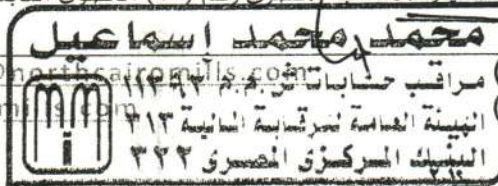 محمد محمد إسماعيل
@northcairomills.com
مراقب حسابات س.م.م
mills.com
الهيئة العامة للرقابة المالية ٣١٣
البنك المركزى المصرى ٣٢٢
mm
i